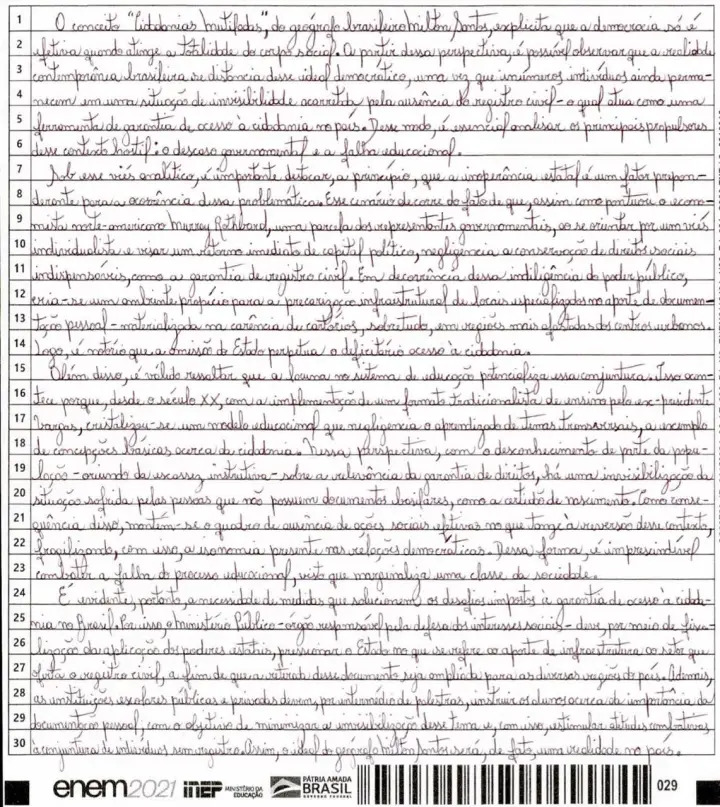 1 O conceito "Cidadanias Mutiladas", do geógrafo brasileiro Milton Santos, explicita que a democracia só é
2 efetiva quando atinge a totalidade do corpo social. A partir dessa perspectiva, é possível observar que a realidade
3 contemporânea brasileira se distancia desse ideal democrático, uma vez que inúmeros indivíduos ainda perma-
4 necem em uma situação de invisibilidade acarretada pela ausência do registro civil - o qual atua como uma
5 ferramenta de garantia de acesso à cidadania no país. Desse modo, é essencial analisar os principais propulsores
6 desse contexto hostil: o descaso governamental e a falha educacional.
7 Sob esse viés analítico, é importante destacar, a princípio, que a inoperância estatal é um fator prepon-
8 derante para a ocorrência dessa problemática. Esse cenário decorre do fato de que, assim como pontuou o econo-
9 mista norte-americano Murray Rothbard, uma parcela dos representantes governamentais, ao se orientar por um viés
10 individualista e visar um retorno imediato de capital político, negligencia a conservação de direitos sociais
11 indispensáveis, como a garantia de registro civil. Em decorrência dessa indiligência do poder público,
12 cria-se um ambiente propício para a precarização infraestrutural de locais especializados no aporte de documen-
13 tação pessoal - materializada na carência de cartórios, sobretudo, em regiões mais afastadas dos centros urbanos.
14 Logo, é notório que a omissão do Estado perpetua o deficitário acesso à cidadania.
15 Além disso, é válido ressaltar que a lacuna no sistema de educação potencializa essa conjuntura. Isso acon-
16 tece porque, desde o século XX, com a implementação de um formato tradicionalista de ensino pelo ex-presidente
17 Vargas, cristalizou-se um modelo educacional que negligencia o aprendizado de temas transversais, a exemplo
18 de concepções básicas acerca da cidadania. Nessa perspectiva, com o desconhecimento de parte da popu-
19 lação - oriundo da escassez instrutiva - sobre a relevância da garantia de direitos, há uma invisibilização da
20 situação sofrida pelas pessoas que não possuem documentos basilares, como a certidão de nascimento. Como conse-
21 quência disso, mantém-se o quadro de ausência de ações sociais efetivas no que tange à reversão desse contexto,
22 fragilizando, com isso, a isonomia presente nas relações democráticas. Dessa forma, é imprescindível
23 combater a falha do processo educacional, visto que marginaliza uma classe da sociedade.
24 É evidente, portanto, a necessidade de medidas que solucionem os desafios impostos à garantia de acesso à cidada-
25 nia no Brasil. Por isso, o Ministério Público - órgão responsável pela defesa dos interesses sociais - deve, por meio de fisca-
26 lização da aplicação dos poderes estatais, pressionar o Estado no que se refere ao aporte de infraestrutura ao setor que
27 oferta o registro civil, a fim de que a retirada desse documento seja ampliada para as diversas regiões do país. Ademais,
28 as instituições escolares públicas e privadas devem, por intermédio de palestras, instruir os alunos acerca da importância da
29 documentação pessoal, com o objetivo de minimizar a invisibilização desse tema e, com isso, estimular atitudes combativas
30 à conjuntura de indivíduos sem registro. Assim, o ideal do geógrafo Milton Santos será, de fato, uma realidade no país.
enem2021 inep MINISTÉRIO DA EDUCAÇÃO PÁTRIA AMADA BRASIL GOVERNO FEDERAL 029